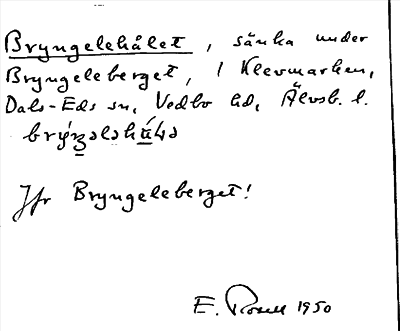 Bryngelehålet, sänka under
Bryngeleberget, i Klevmarken,
Dals-Eds sn, Vedbo hd, Älvsb. l.
Jfr Bryngeleberget!
E. 1950